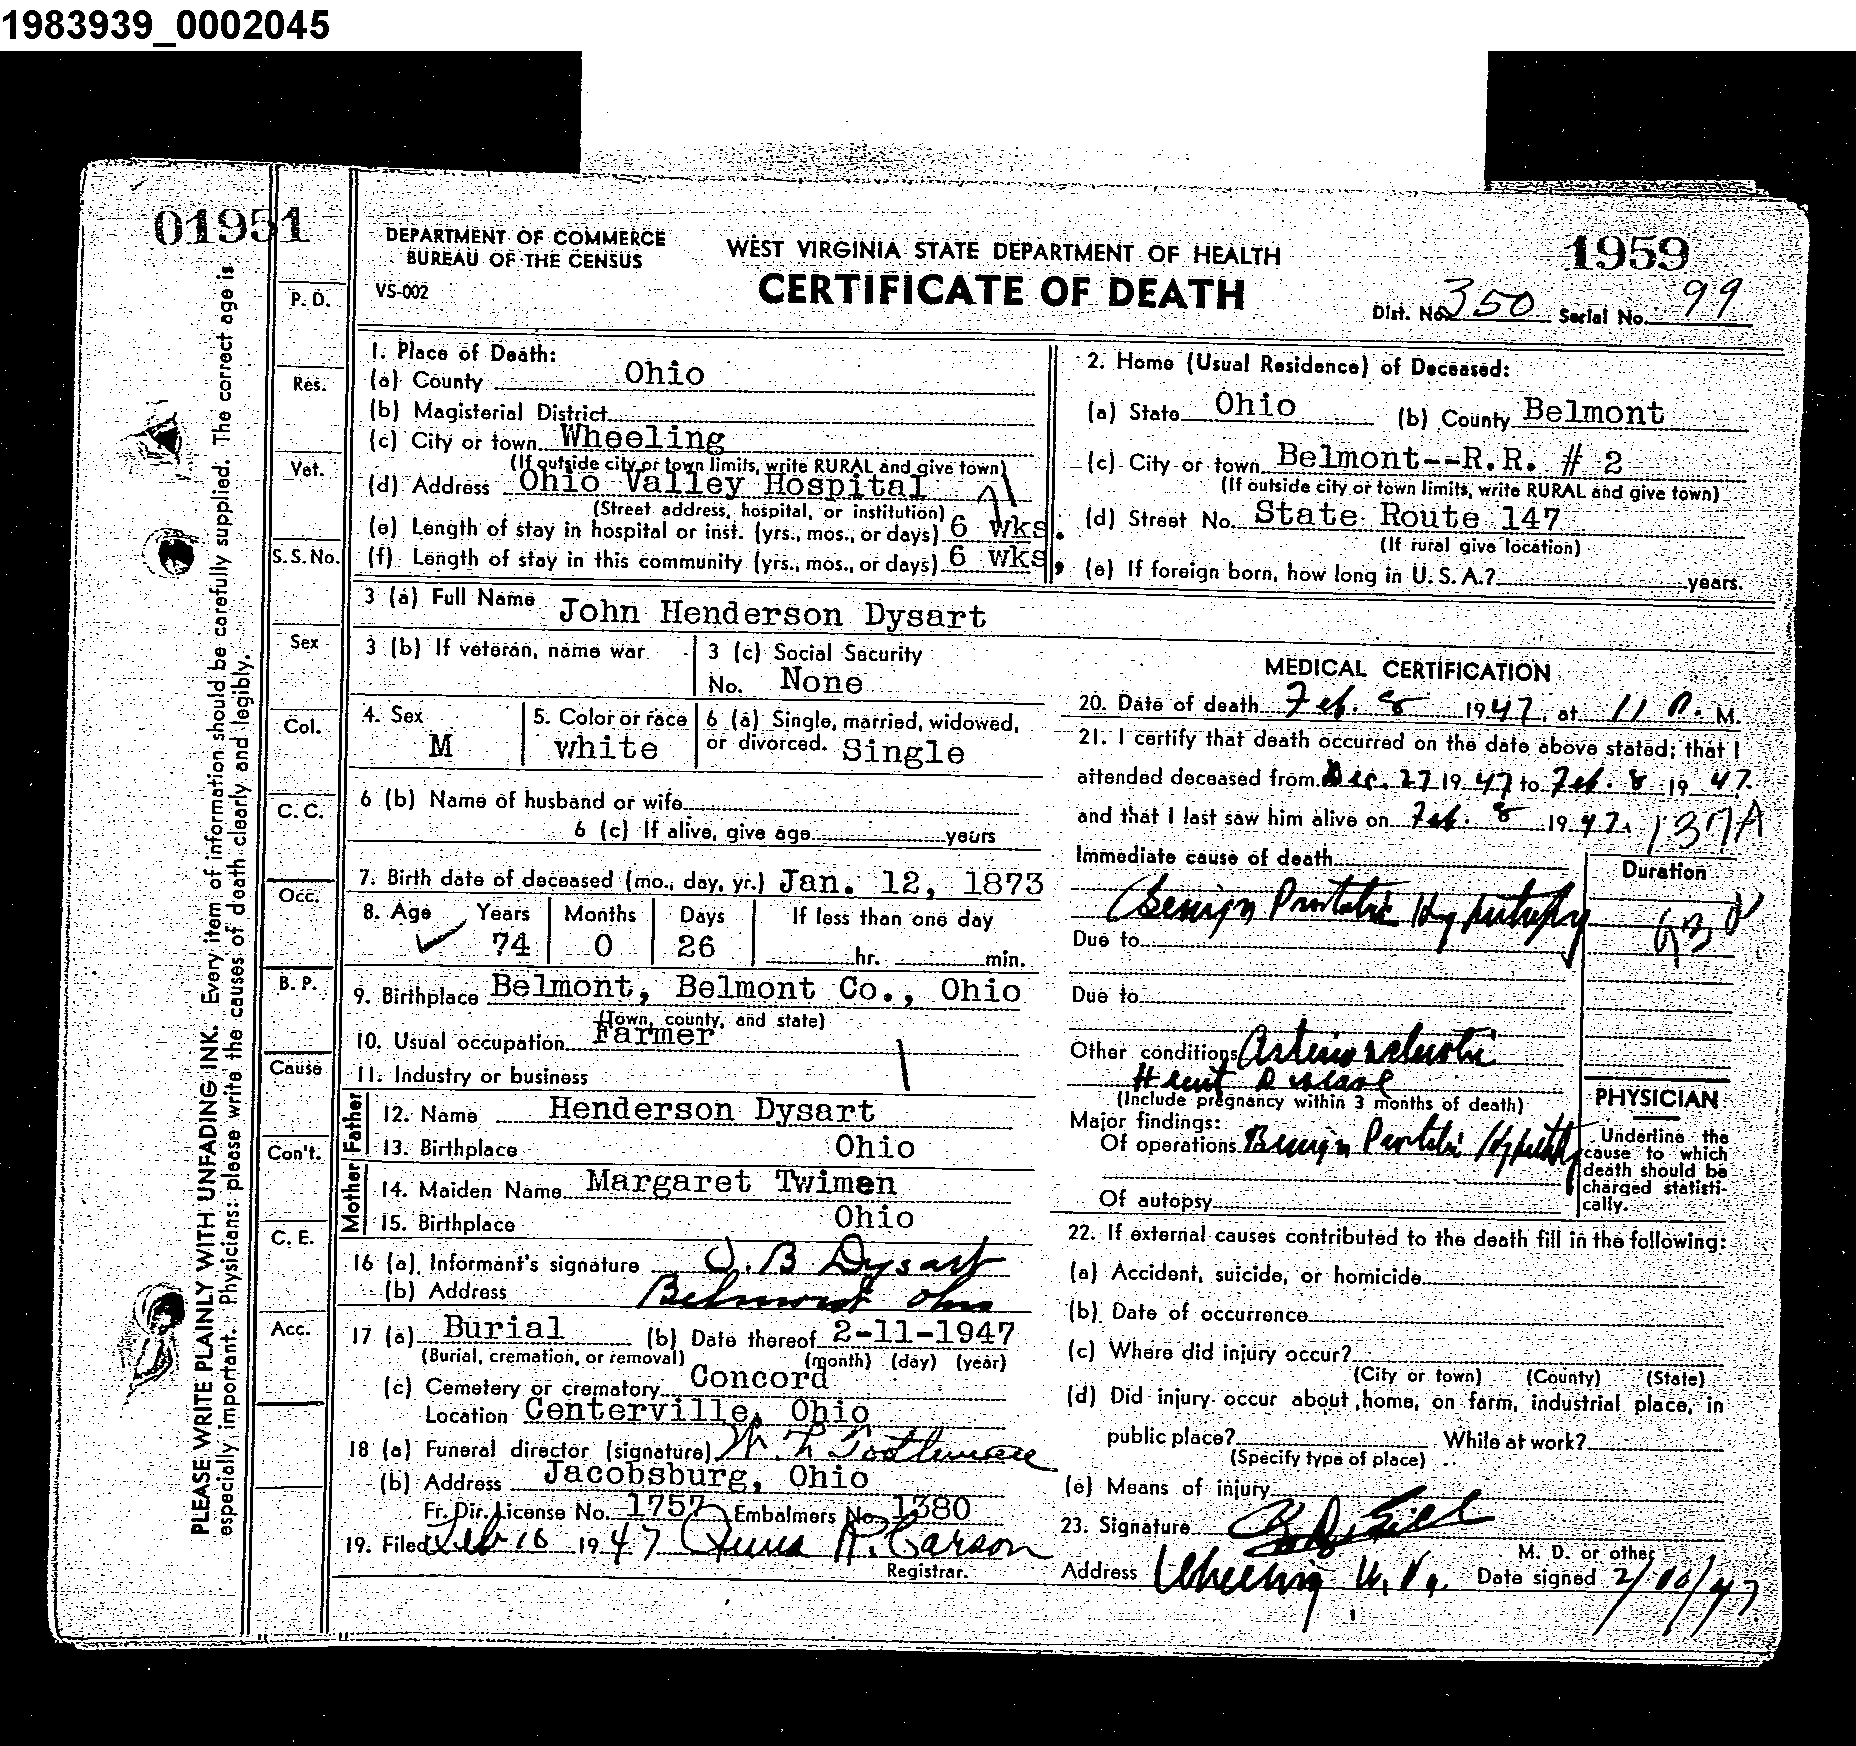 1983939_0002045
01951
DEPARTMENT OF COMMERCE
BUREAU OF THE CENSUS
VS-002
WEST VIRGINIA STATE DEPARTMENT OF HEALTH
CERTIFICATE OF DEATH
1959
Dist. No. 350 Serial No. 99
PLEASE WRITE PLAINLY WITH UNFADING INK. Every item of information should be carefully supplied. The correct age is
especially important. Physicians: please write the causes of death clearly and legibly.
P. D.
Res.
Vet.
S. S. No.
Sex
Col.
C. C.
Occ.
B. P.
Cause
Con't.
C. E.
Acc.
1. Place of Death:
(a) County Ohio
(b) Magisterial District
(c) City or town Wheeling
(If outside city or town limits, write RURAL and give town)
(d) Address Ohio Valley Hospital
(Street address, hospital, or institution)
(e) Length of stay in hospital or inst. (yrs., mos., or days) 6 wks.
(f) Length of stay in this community (yrs., mos., or days) 6 wks,
2. Home (Usual Residence) of Deceased:
(a) State Ohio (b) County Belmont
(c) City or town Belmont--R.R. # 2
(If outside city or town limits, write RURAL and give town)
(d) Street No. State Route 147
(If rural give location)
(e) If foreign born, how long in U. S. A.? years.
3 (a) Full Name John Henderson Dysart
3 (b) If veteran, name war
3 (c) Social Security
No. None
4. Sex
M
5. Color or race
white
6 (a) Single, married, widowed,
or divorced. Single
6 (b) Name of husband or wife
6 (c) If alive, give age years
7. Birth date of deceased (mo., day, yr.) Jan. 12, 1873
8. Age Years Months Days If less than one day
74 0 26 hr. min.
9. Birthplace Belmont, Belmont Co., Ohio
(Town, county, and state)
10. Usual occupation Farmer
11. Industry or business
Father
12. Name Henderson Dysart
13. Birthplace Ohio
Mother
14. Maiden Name Margaret Twimen
15. Birthplace Ohio
16 (a) Informant's signature O. B Dysart
(b) Address Belmont Ohio
17 (a) Burial (b) Date thereof 2-11-1947
(Burial, cremation, or removal) (month) (day) (year)
(c) Cemetery or crematory Concord
Location Centerville, Ohio
18 (a) Funeral director (signature) W. L.
(b) Address Jacobsburg, Ohio
Fr. Dir. License No. 1757 Embalmers No. 1380
19. Filed Feb 10 1947 R. Carson
Registrar.
MEDICAL CERTIFICATION
20. Date of death Feb. 8 1947, at 11 P. M.
21. I certify that death occurred on the date above stated; that I
attended deceased from Dec. 27 1947 to Feb. 8 1947.
and that I last saw him alive on Feb. 8 1947. 137A
Immediate cause of death
Duration
Benign Prostatic Hypertrophy
Due to
Due to
Other conditions Arteriosclerotic
Heart Disease
(Include pregnancy within 3 months of death)
Major findings:
Of operations Benign Prostatic Hypertrophy
Of autopsy
PHYSICIAN
Underline the
cause to which
death should be
charged statisti-
cally.
22. If external causes contributed to the death fill in the following:
(a) Accident, suicide, or homicide
(b) Date of occurrence
(c) Where did injury occur?
(City or town) (County) (State)
(d) Did injury occur about home, on farm, industrial place, in
public place? While at work?
(Specify type of place)
(e) Means of injury
23. Signature
M. D. or other
Address Wheeling W. Va. Date signed 2/10/47